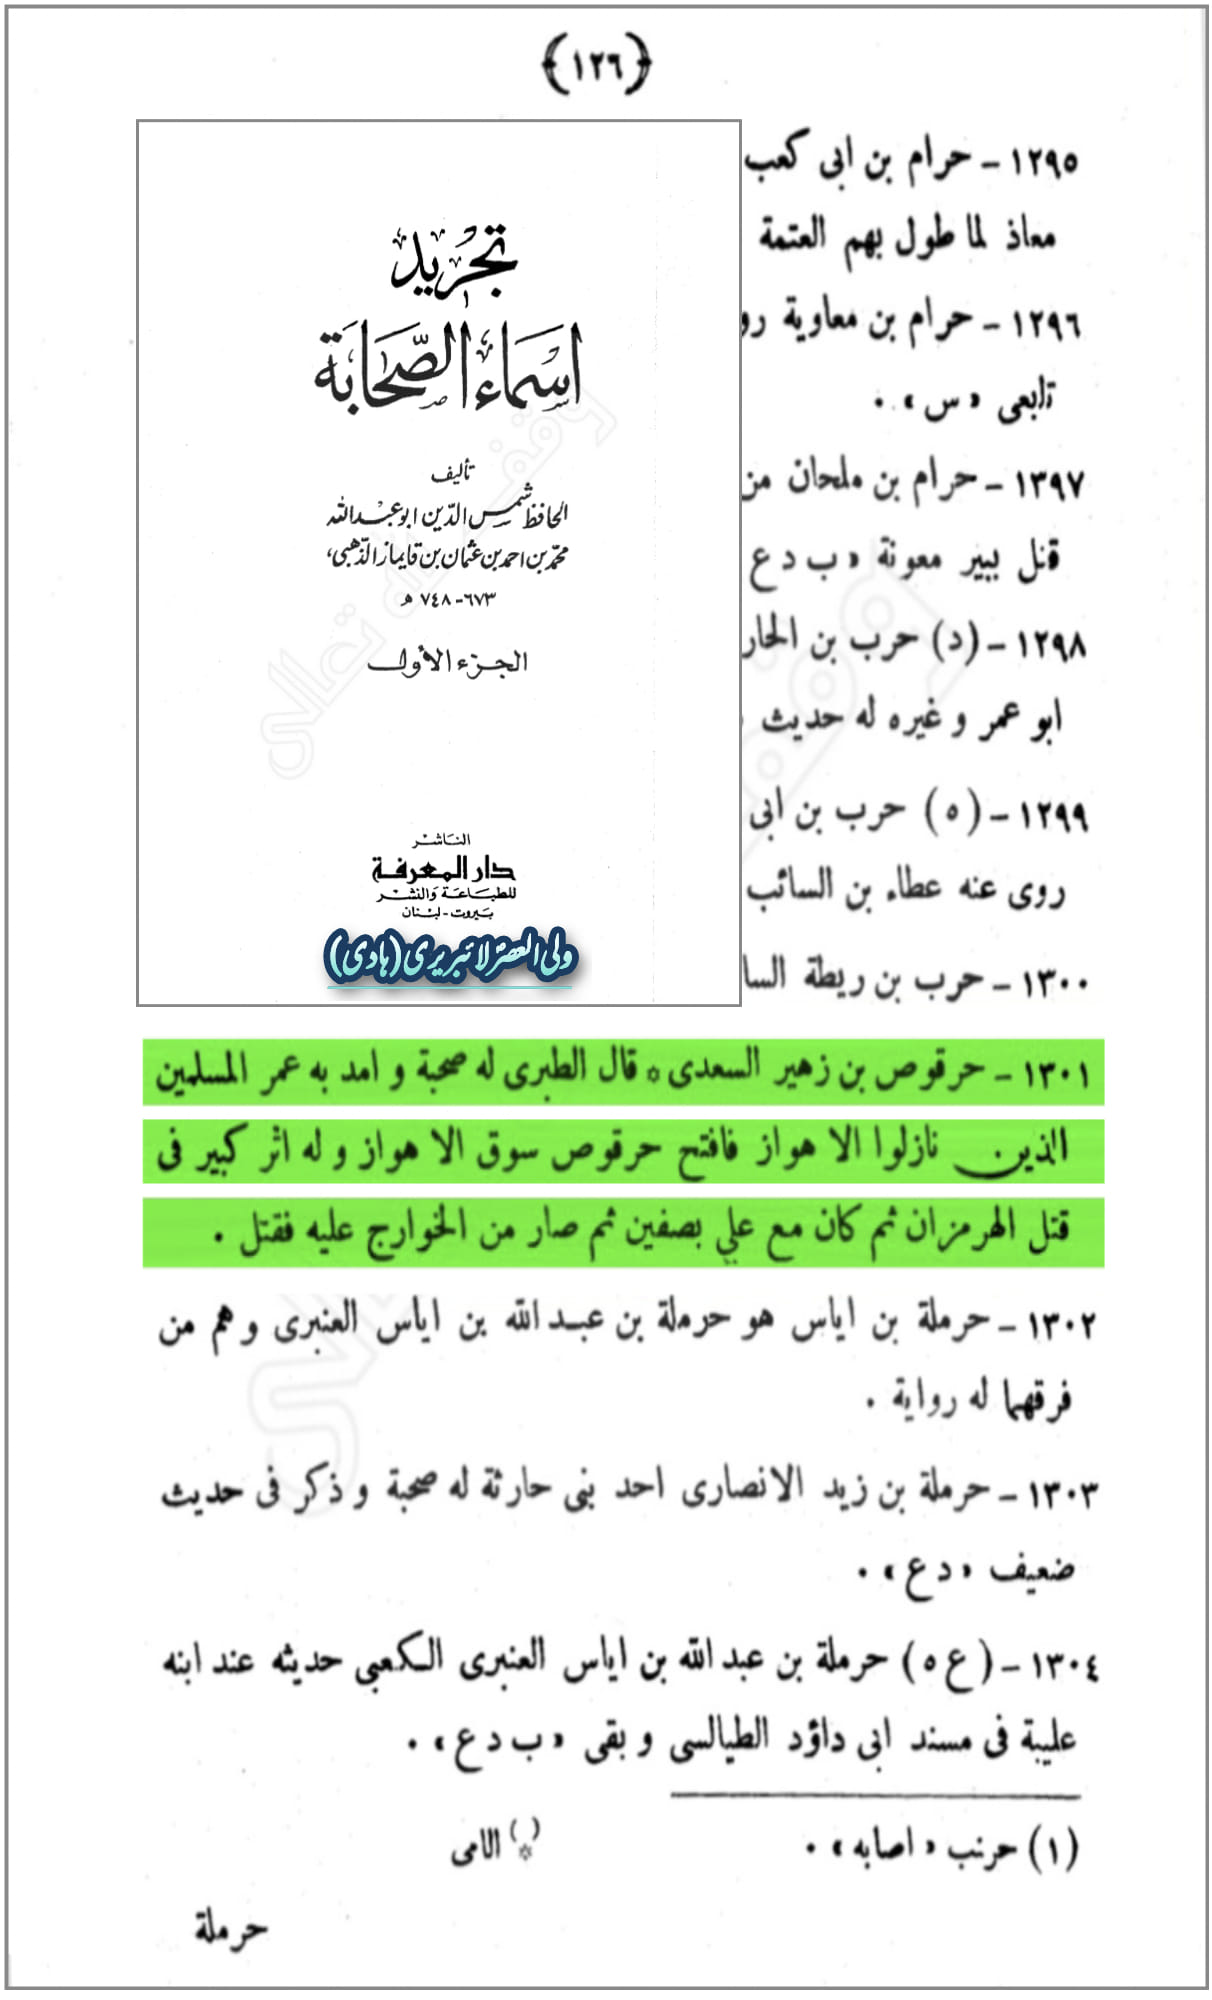 ﴿١٢٦﴾
١٢٩٥ - حرام بن ابى كعب
معاذ لما طول بهم العتمة
١٢٩٦ - حرام بن معاوية رو
تابعى «س» .
١٣٩٧ - حرام بن ملحان من
قتل ببير معونة «ب د ع
١٢٩٨ - (د) حرب بن الحار
ابو عمر و غيره له حديث
١٢٩٩ - (ه) حرب بن ابى
روى عنه عطاء بن السائب
١٣٠٠ - حرب بن ريطة السا
تجريد
اسماء الصحابة
تأليف
الحافظ شمس الدين ابو عبد الله
محمد بن احمد بن عثمان بن قايماز الذهبى،
٦٧٣-٧٤٨ هـ
الجزء الأول
الناشر
دار المعرفة
للطباعة والنشر
بيروت - لبنان
ولی العصر لائبریری (ہادی)
١٣٠١ - حرقوص بن زهير السعدى * قال الطبرى له صحبة و امد به عمر المسلمين
الذين نازلوا الاهواز فافتح حرقوص سوق الاهواز و له اثر كبير فى
قتل الهرمزان ثم كان مع علي بصفين ثم صار من الخوارج عليه فقتل .
١٣٠٢ - حرملة بن اياس هو حرملة بن عبد الله بن اياس العنبرى و هم من
فرقهما له رواية .
١٣٠٣ - حرملة بن زيد الانصارى احد بنى حارثة له صحبة و ذكر فى حديث
ضعيف «د ع» .
١٣٠٤ - (ع ه) حرملة بن عبد الله بن اياس العنبرى الكعبى حديثه عند ابنه
عليبة فى مسند ابى داؤد الطيالسى و بقى «ب د ع» .
(١) حرنب «اصابه» .
(*) الامى
حرملة